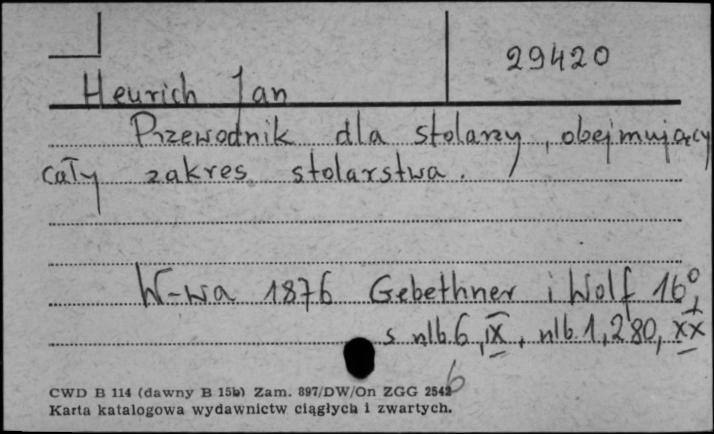 29420
Heurich Jan
Przewodnik dla stolarzy, obejmujący
cały zakres stolarstwa.
W-wa 1876 Gebethner i Wolf 16°,
s nlb. 6, IX, nlb. 1, 280, XX
CWD B 114 (dawny B 15b) Zam. 897/DW/On ZGG 2542
b
Karta katalogowa wydawnictw ciągłych i zwartych.